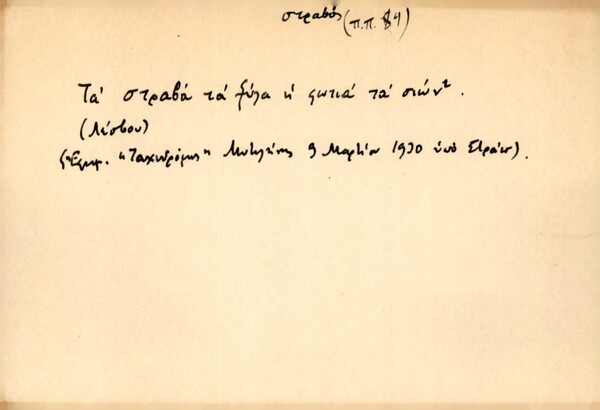 στραβός (π.π. 84)
Τά στραβά τά ξύλα ἡ φωτιά τά σιών'.
(Λέσβου)
(Ἐφημ. "Ταχυδρόμος" Μυτιλήνης 9 Μαρτίου 1930